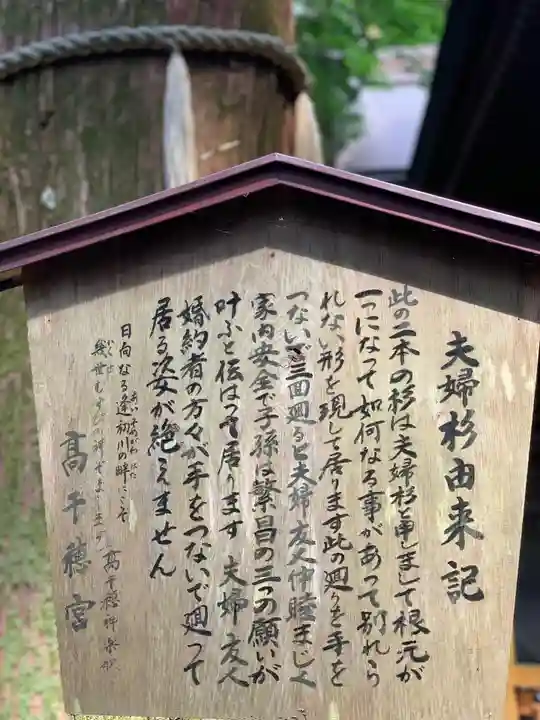 夫婦杉由来記
此の二本の杉は夫婦杉と申しまして根元が
一つになって如何なる事があって別れら
れない形を現して居ります此の廻りを手を
つないで三回廻ると夫婦友人仲睦まじく
家内安全で子孫は繁昌の三つの願いが
叶ふと伝はって居ります 夫婦 友人
婚約者の方々が手をつないで廻って
居る姿が絶えません
日向なる逢初川の畔にこそ
あいそめがわ はた
幾世むすびの神ぞまします 高千穂神楽歌
いくよ
高千穂宮